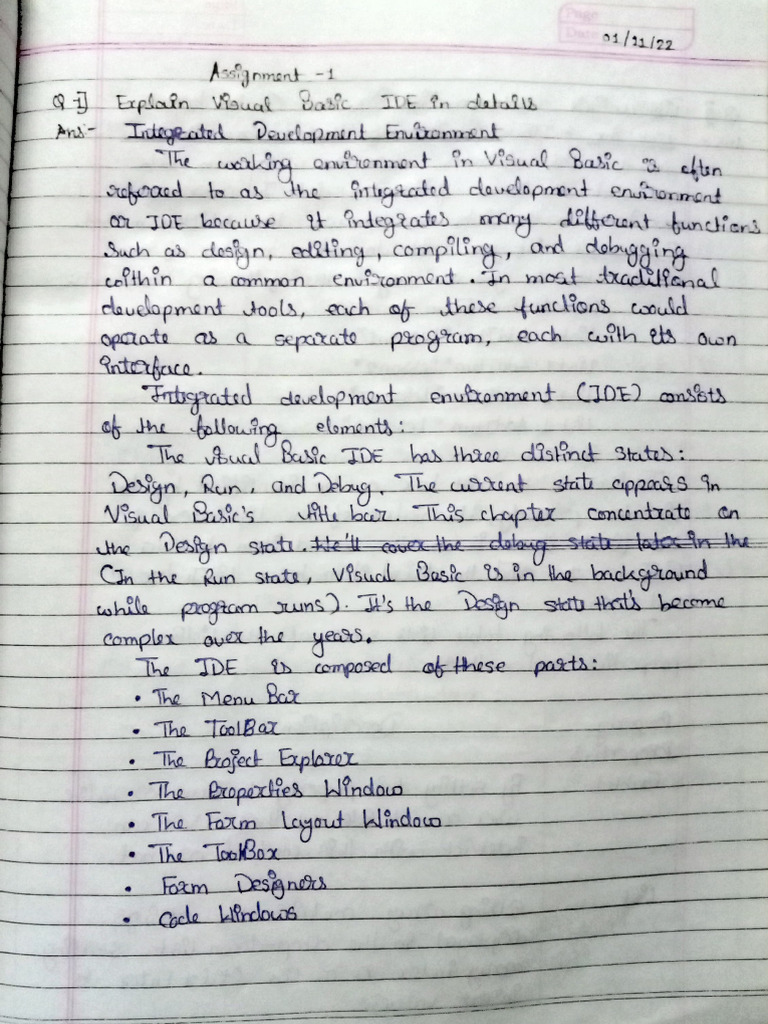 Page
Date 01/11/22
Assignment - 1
Q-1] Explain Visual Basic IDE in details
Ans:- Integrated Development Environment
The working environment in Visual Basic is often
refered to as the integrated development environment
or IDE because it integrates many different functions
such as design, editing, compiling, and debugging
within a common environment. In most traditional
development tools, each of these functions would
operate as a separate program, each with its own
interface.
Integrated development environment (IDE) consists
of the following elements:
The visual Basic IDE has three distinct states:
Design, Run, and Debug. The current state appears in
Visual Basic's title bar. This chapter concentrate on
the Design state. We'll cover the debug state later in the
(In the Run state, Visual Basic is in the background
while program runs). It's the Design state that's become
complex over the years.
The IDE is composed of these parts:
• The Menu Bar
• The ToolBar
• The Project Explorer
• The Properties Window
• The Form Layout Window
• The ToolBox
• Form Designers
• Code Windows